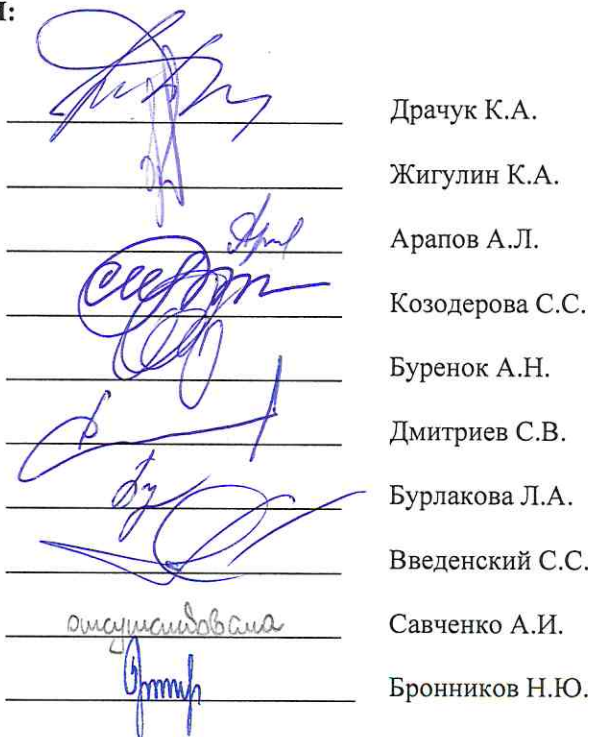 Драчук К.А.
Жигулин К.А.
Арапов А.Л.
Козодерова С.С.
Буренок А.Н.
Дмитриев С.В.
Бурлакова Л.А.
Введенский С.С.
отсутствовала Савченко А.И.
Бронников Н.Ю.